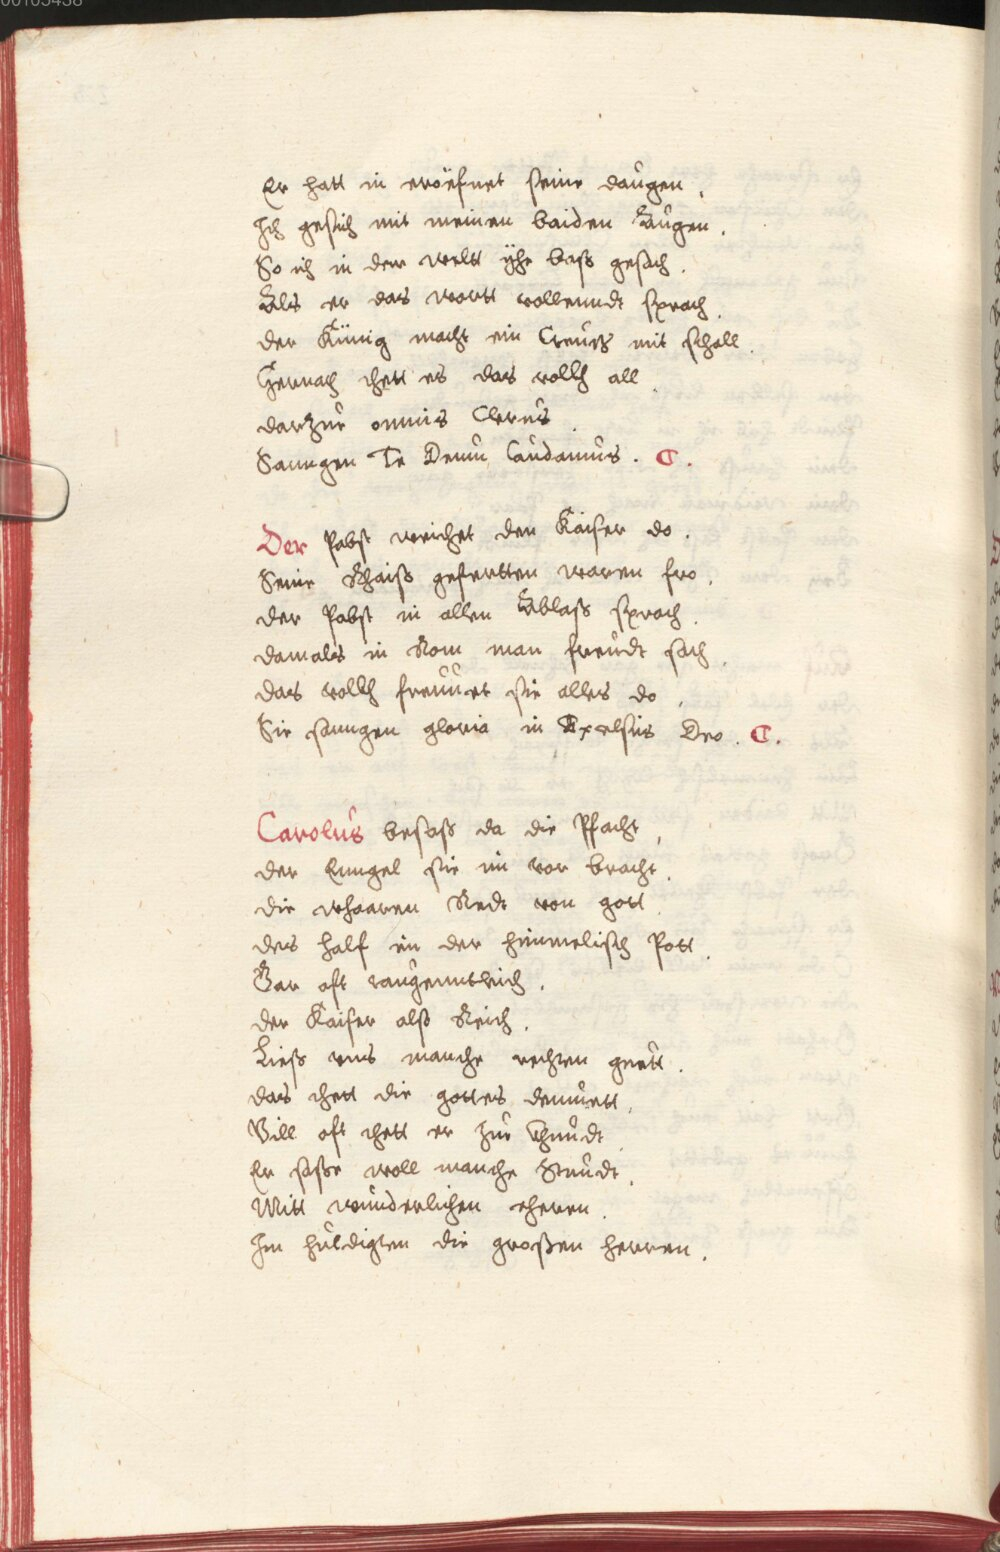 00105458
Er hatt in eröefnet seine daugen.
Ich gesich mit meinen baiden Augen.
So ich in der weltt ÿhe bass gesach.
Als er das wortt vollenndt sprach.
der Künig macht ein Creutz mit schall.
Hernach thett es das vollkh all.
darzue omnis Clerus.
Sanngen Te Deum Laudamus. C.
Der Pabst weichet den Kaiser do.
Seine Rhaiß gefertten waren fro.
der Pabst in allen Ablass sprach.
damals in Rom man freudt sach.
das vollkh freuuet sie alles do.
Sie sanngen gloria in Excelsis Deo. C.
Carolus besass da die Pfacht,
der Enngel sie im vor bracht.
die whaaren Redt von gott.
des half im der himmelisch Pott.
Gar oft taugenntleich.
der Kaiser alß Reich.
Ließ uns manche rechten guett.
das thett die gottes demuett.
Vill oft thett er zue Khundt.
Er sasse woll manche Stundt.
Mitt wunderlichen eheren.
Im huldigten die grossen herren.